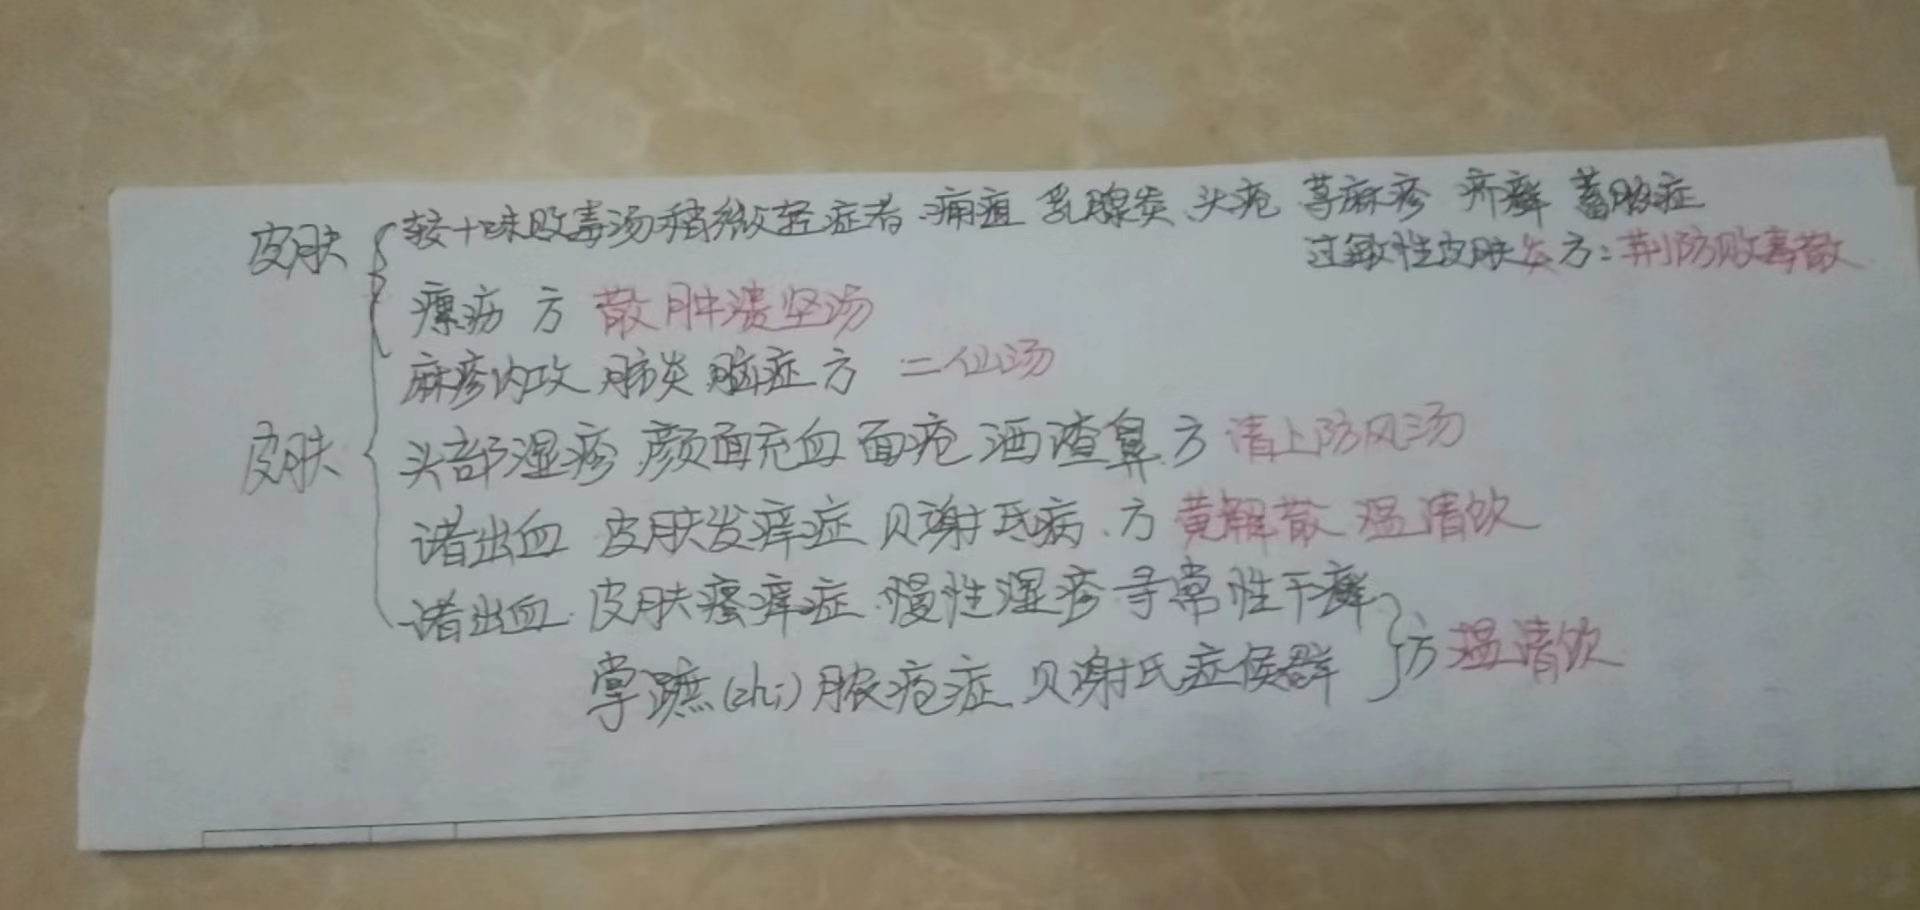 皮肤 较十味败毒汤稍微轻症者 痈疽 乳腺炎 头疮 荨麻疹 疥癣 蓄脓症
过敏性皮肤炎 方:荆防败毒散
瘰疬 方 散肿溃坚汤
麻疹内攻 肺炎 脑症 方 二仙汤
皮肤 头部湿疹 颜面充血 面疮 酒渣鼻 方 清上防风汤
诸出血 皮肤发痒症 贝谢氏病 方 黄解散 温清饮
诸出血 皮肤瘙痒症 慢性湿疹 寻常性干癣
掌蹠(zhi)脓疱症 贝谢氏症候群 方 温清饮